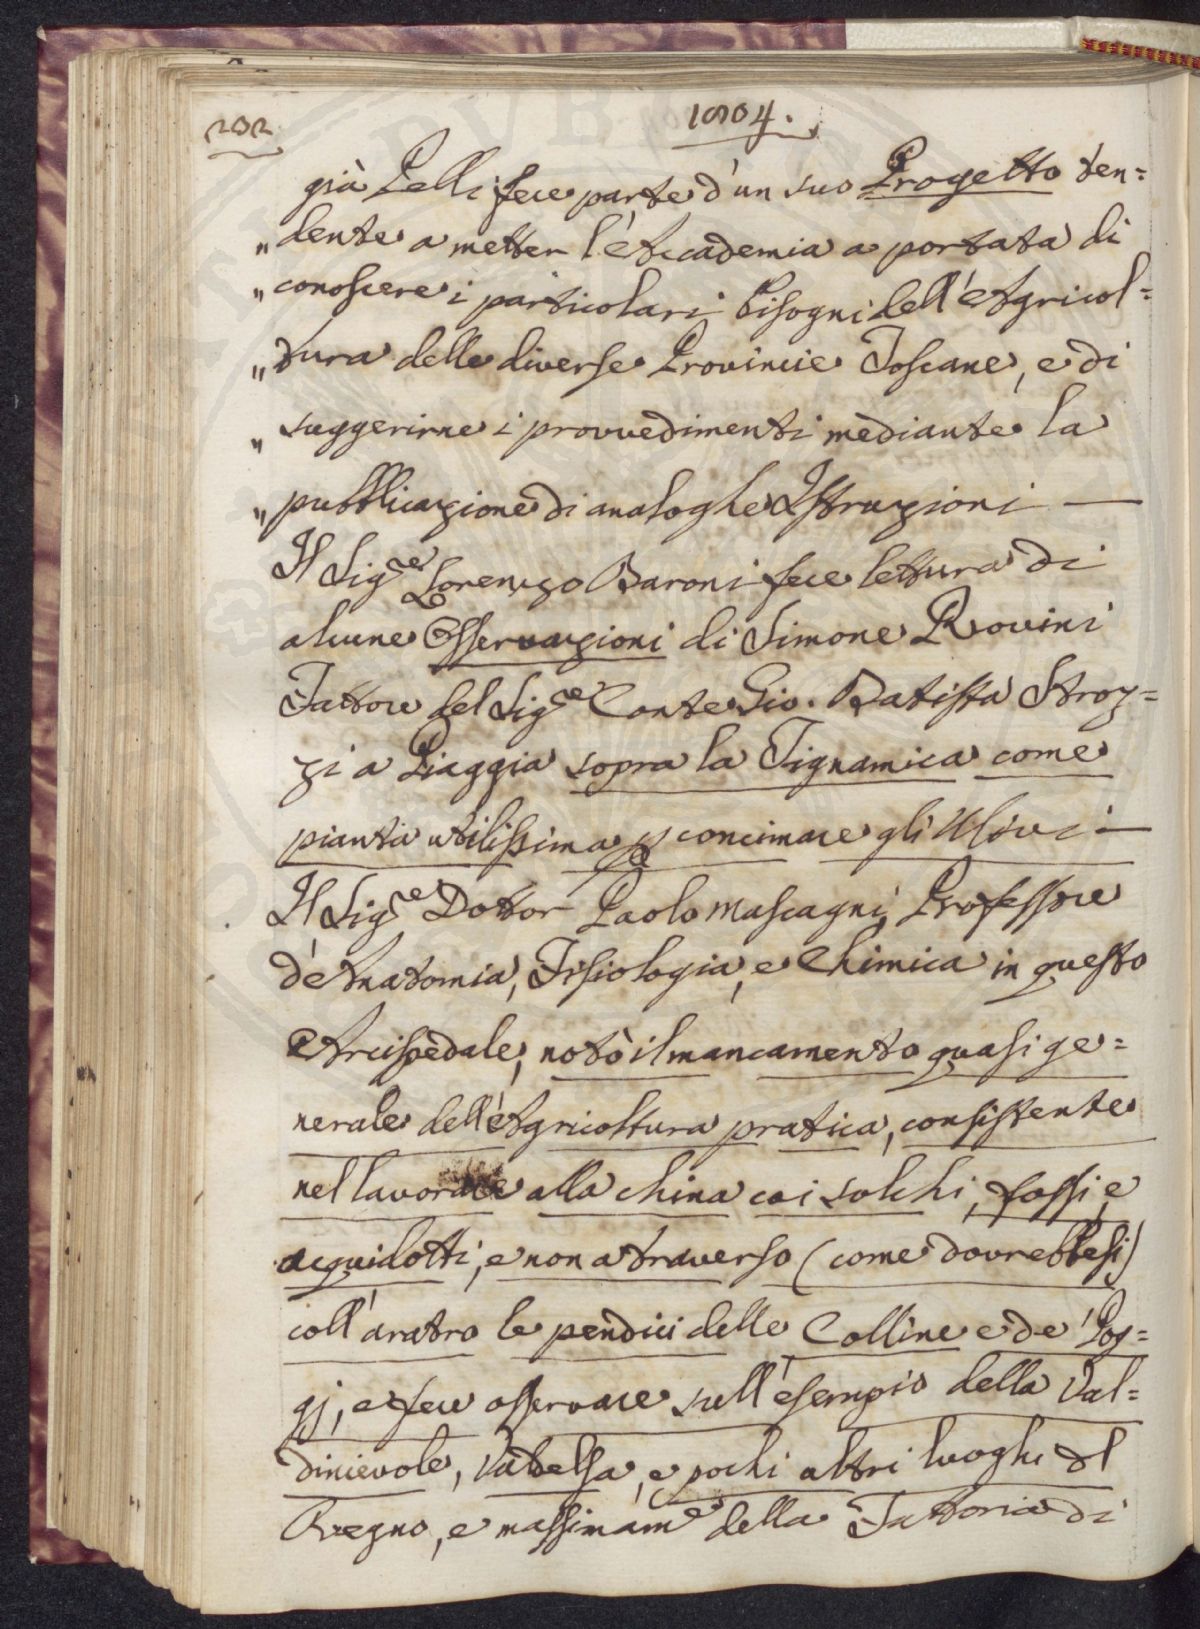 202
1804.
già Pelli fece parte d'un suo Progetto ten=
„ dente a metter l'Accademia a portata di
„ conoscere i particolari bisogni dell'Agricol=
„ tura delle diverse Provincie Toscane, e di
„ suggerirne i provvedimenti mediante la
„ pubblicazione di analoghe Istruzioni —
Il Sig.re Lorenzo Baroni fece lettura di
alcune Osservazioni di Simone Rovini
Fattore del Sig.re Conte Gio. Batista Stroz=
zi a Piaggia sopra la Tignamica come
pianta utilissima p concimare gli Ulivi —
Il Sig.re Dottor Paolo Mascagni, Professore
d'Anatomia, Fisiologia, e Chimica in questo
Arcispedale, notò il mancamento quasi ge=
nerale dell'Agricoltura pratica, consistente
nel lavorare alla china coi solchi, fossi, e
acquidotti, e non a traverso (come dovrebbesi)
coll'aratro le pendici delle Colline e de' Pog=
gj, e fece osservare sull'esempio della Val=
dinievole, Valdelsa, e pochi altri luoghi del
Regno, e massimame della Fattoria di